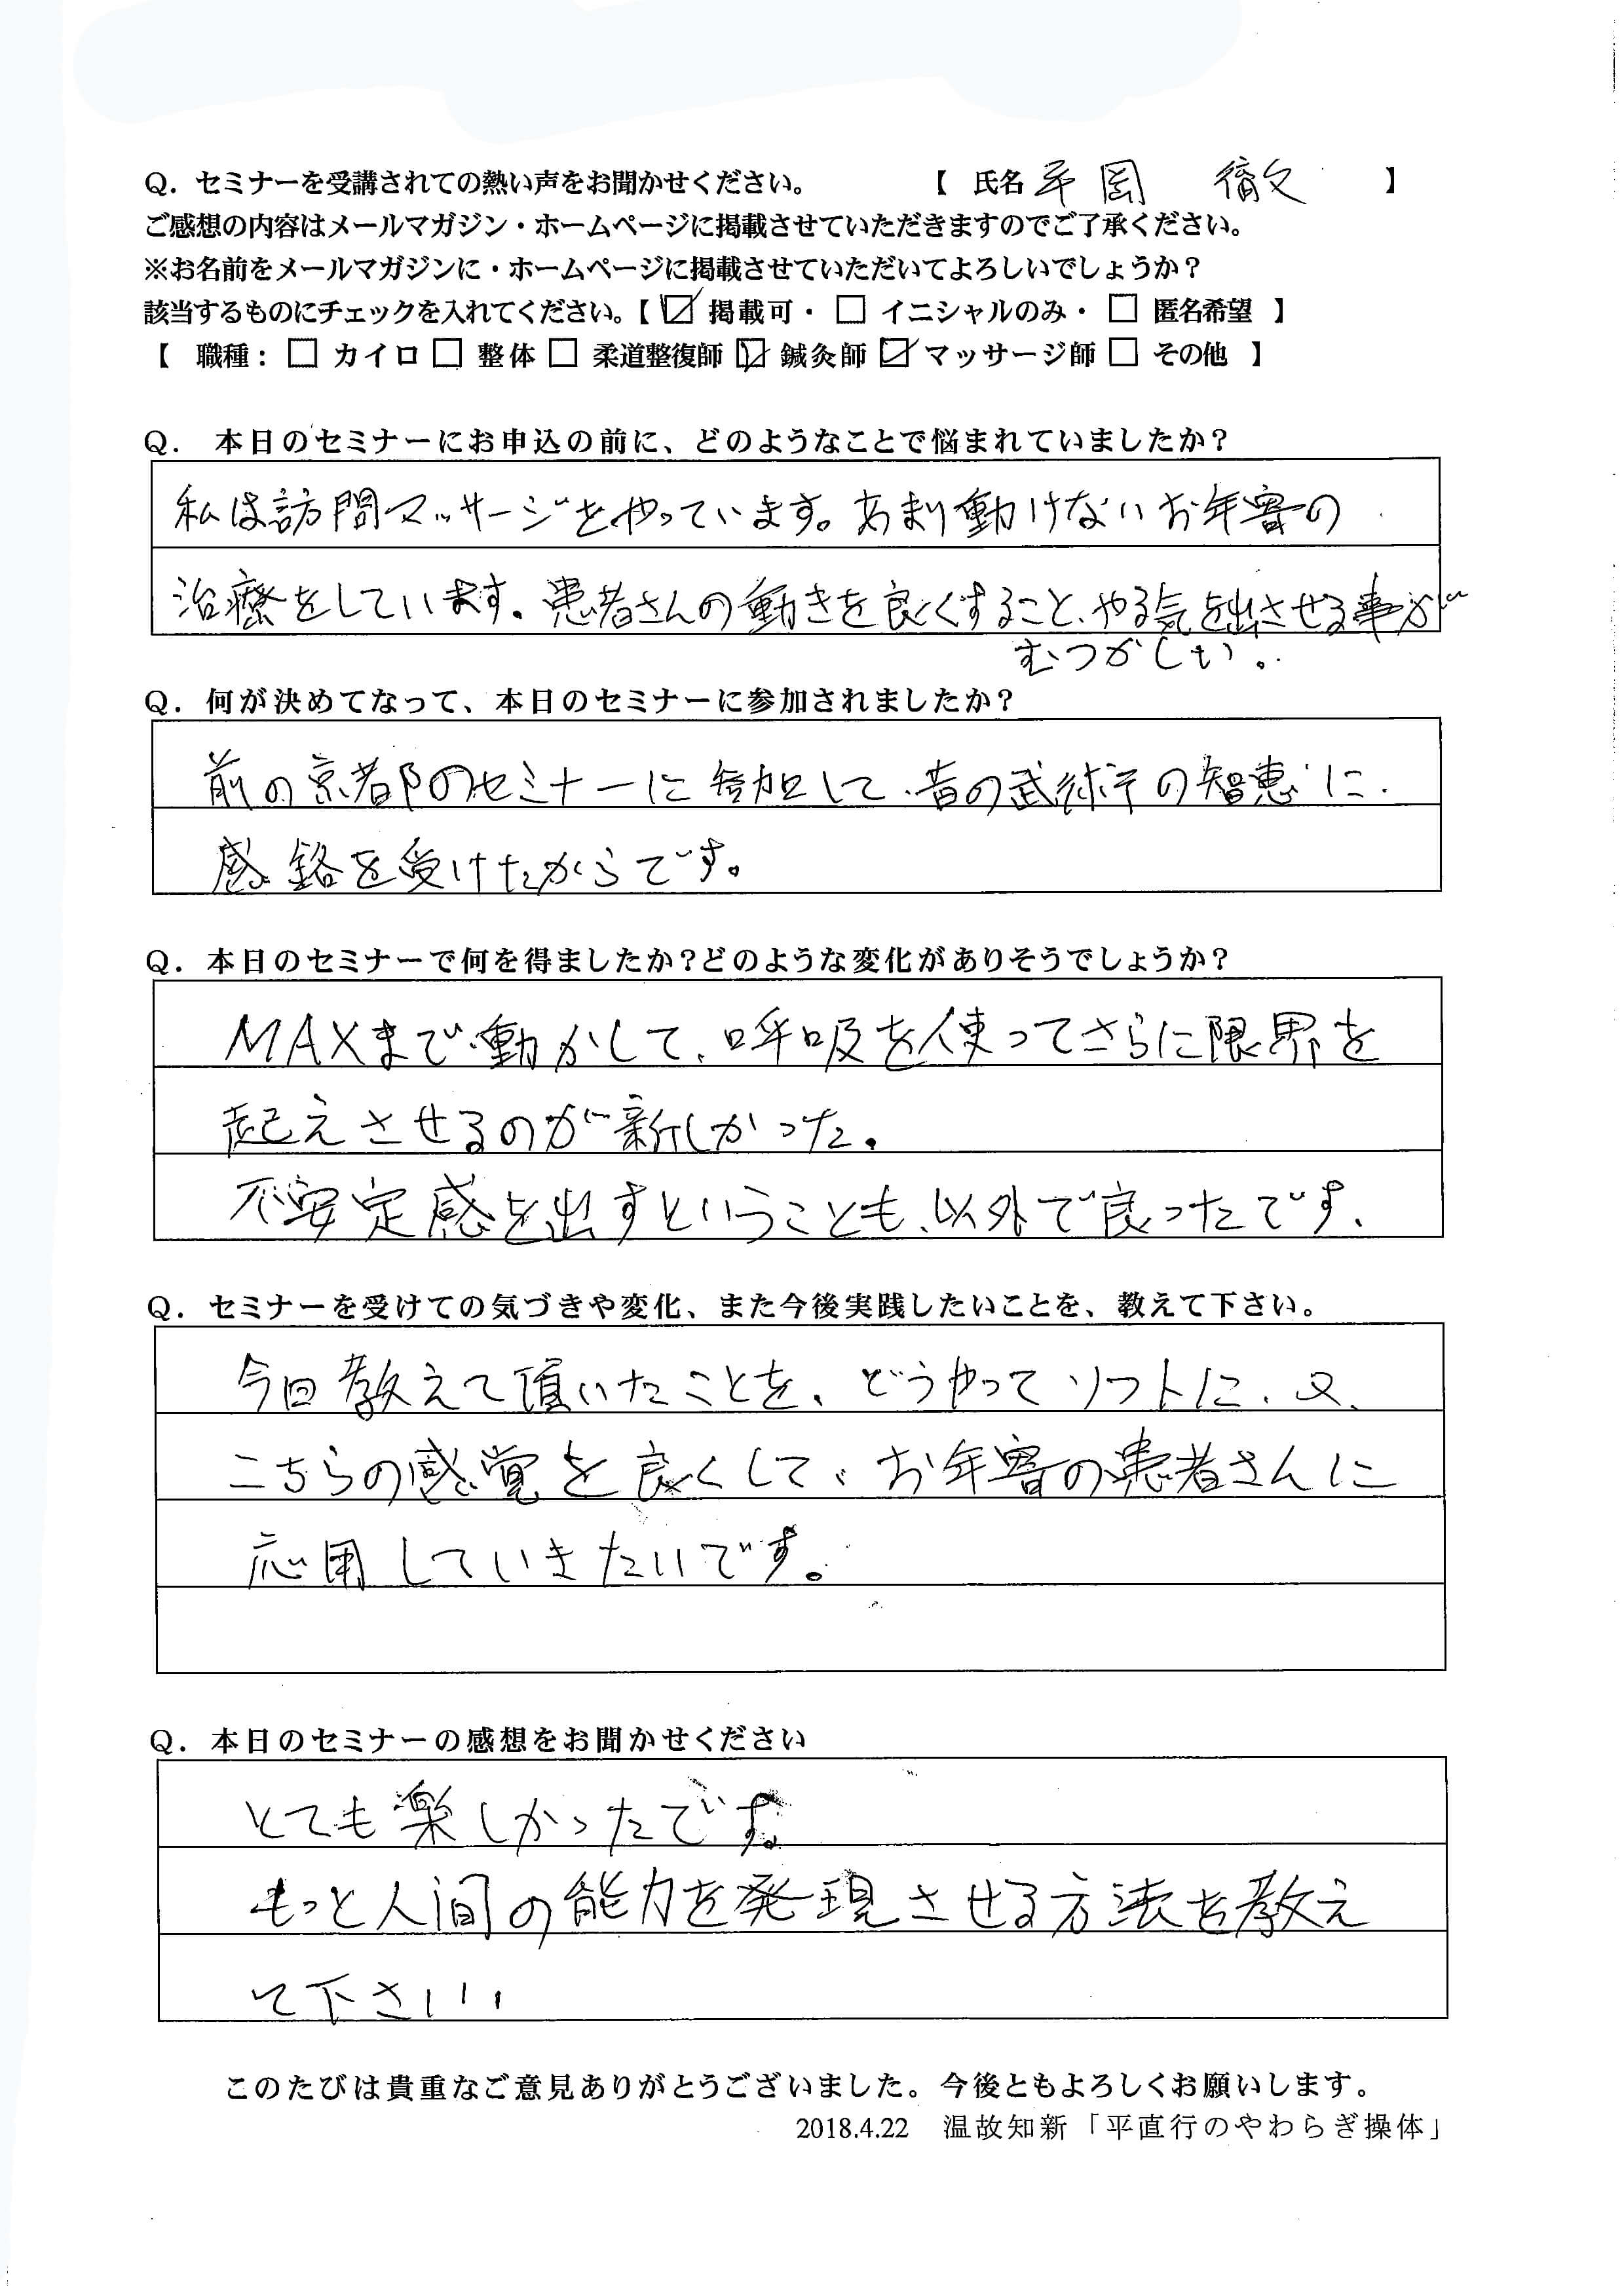 Q. セミナーを受講されての熱い声をお聞かせください。 【 氏名 平岡 徹文 】
ご感想の内容はメールマガジン・ホームページに掲載させていただきますのでご了承ください。
※お名前をメールマガジンに・ホームページに掲載させていただいてよろしいでしょうか?
該当するものにチェックを入れてください。【 ☑ 掲載可・ □ イニシャルのみ・ □ 匿名希望 】
【 職種: □ カイロ □ 整体 □ 柔道整復師 ☑ 鍼灸師 ☑ マッサージ師 □ その他 】
Q. 本日のセミナーにお申込の前に、どのようなことで悩まれていましたか?
私は訪問マッサージをやっています。あまり動けないお年寄の
治療をしています。患者さんの動きを良くすること、やる気を出させる事が
むつかしい。
Q. 何が決めてなって、本日のセミナーに参加されましたか?
前の京都のセミナーに参加して、昔の武術家の智恵に
感銘を受けたからです。
Q. 本日のセミナーで何を得ましたか?どのような変化がありそうでしょうか?
MAXまで動かして、呼吸を使ってさらに限界を
起えさせるのが新しかった。
不安定感を出すということも、以外で良ったです、
Q. セミナーを受けての気づきや変化、また今後実践したいことを、教えて下さい。
今回教えて頂いたことを、どうやってソフトに、又、
こちらの感覚を良くして、お年寄の患者さんに
応用していきたいです。
Q. 本日のセミナーの感想をお聞かせください
とても楽しかったです。
もっと人間の能力を発現させる方法を教え
て下さいい
このたびは貴重なご意見ありがとうございました。今後ともよろしくお願いします。
2018.4.22 温故知新「平直行のやわらぎ操体」